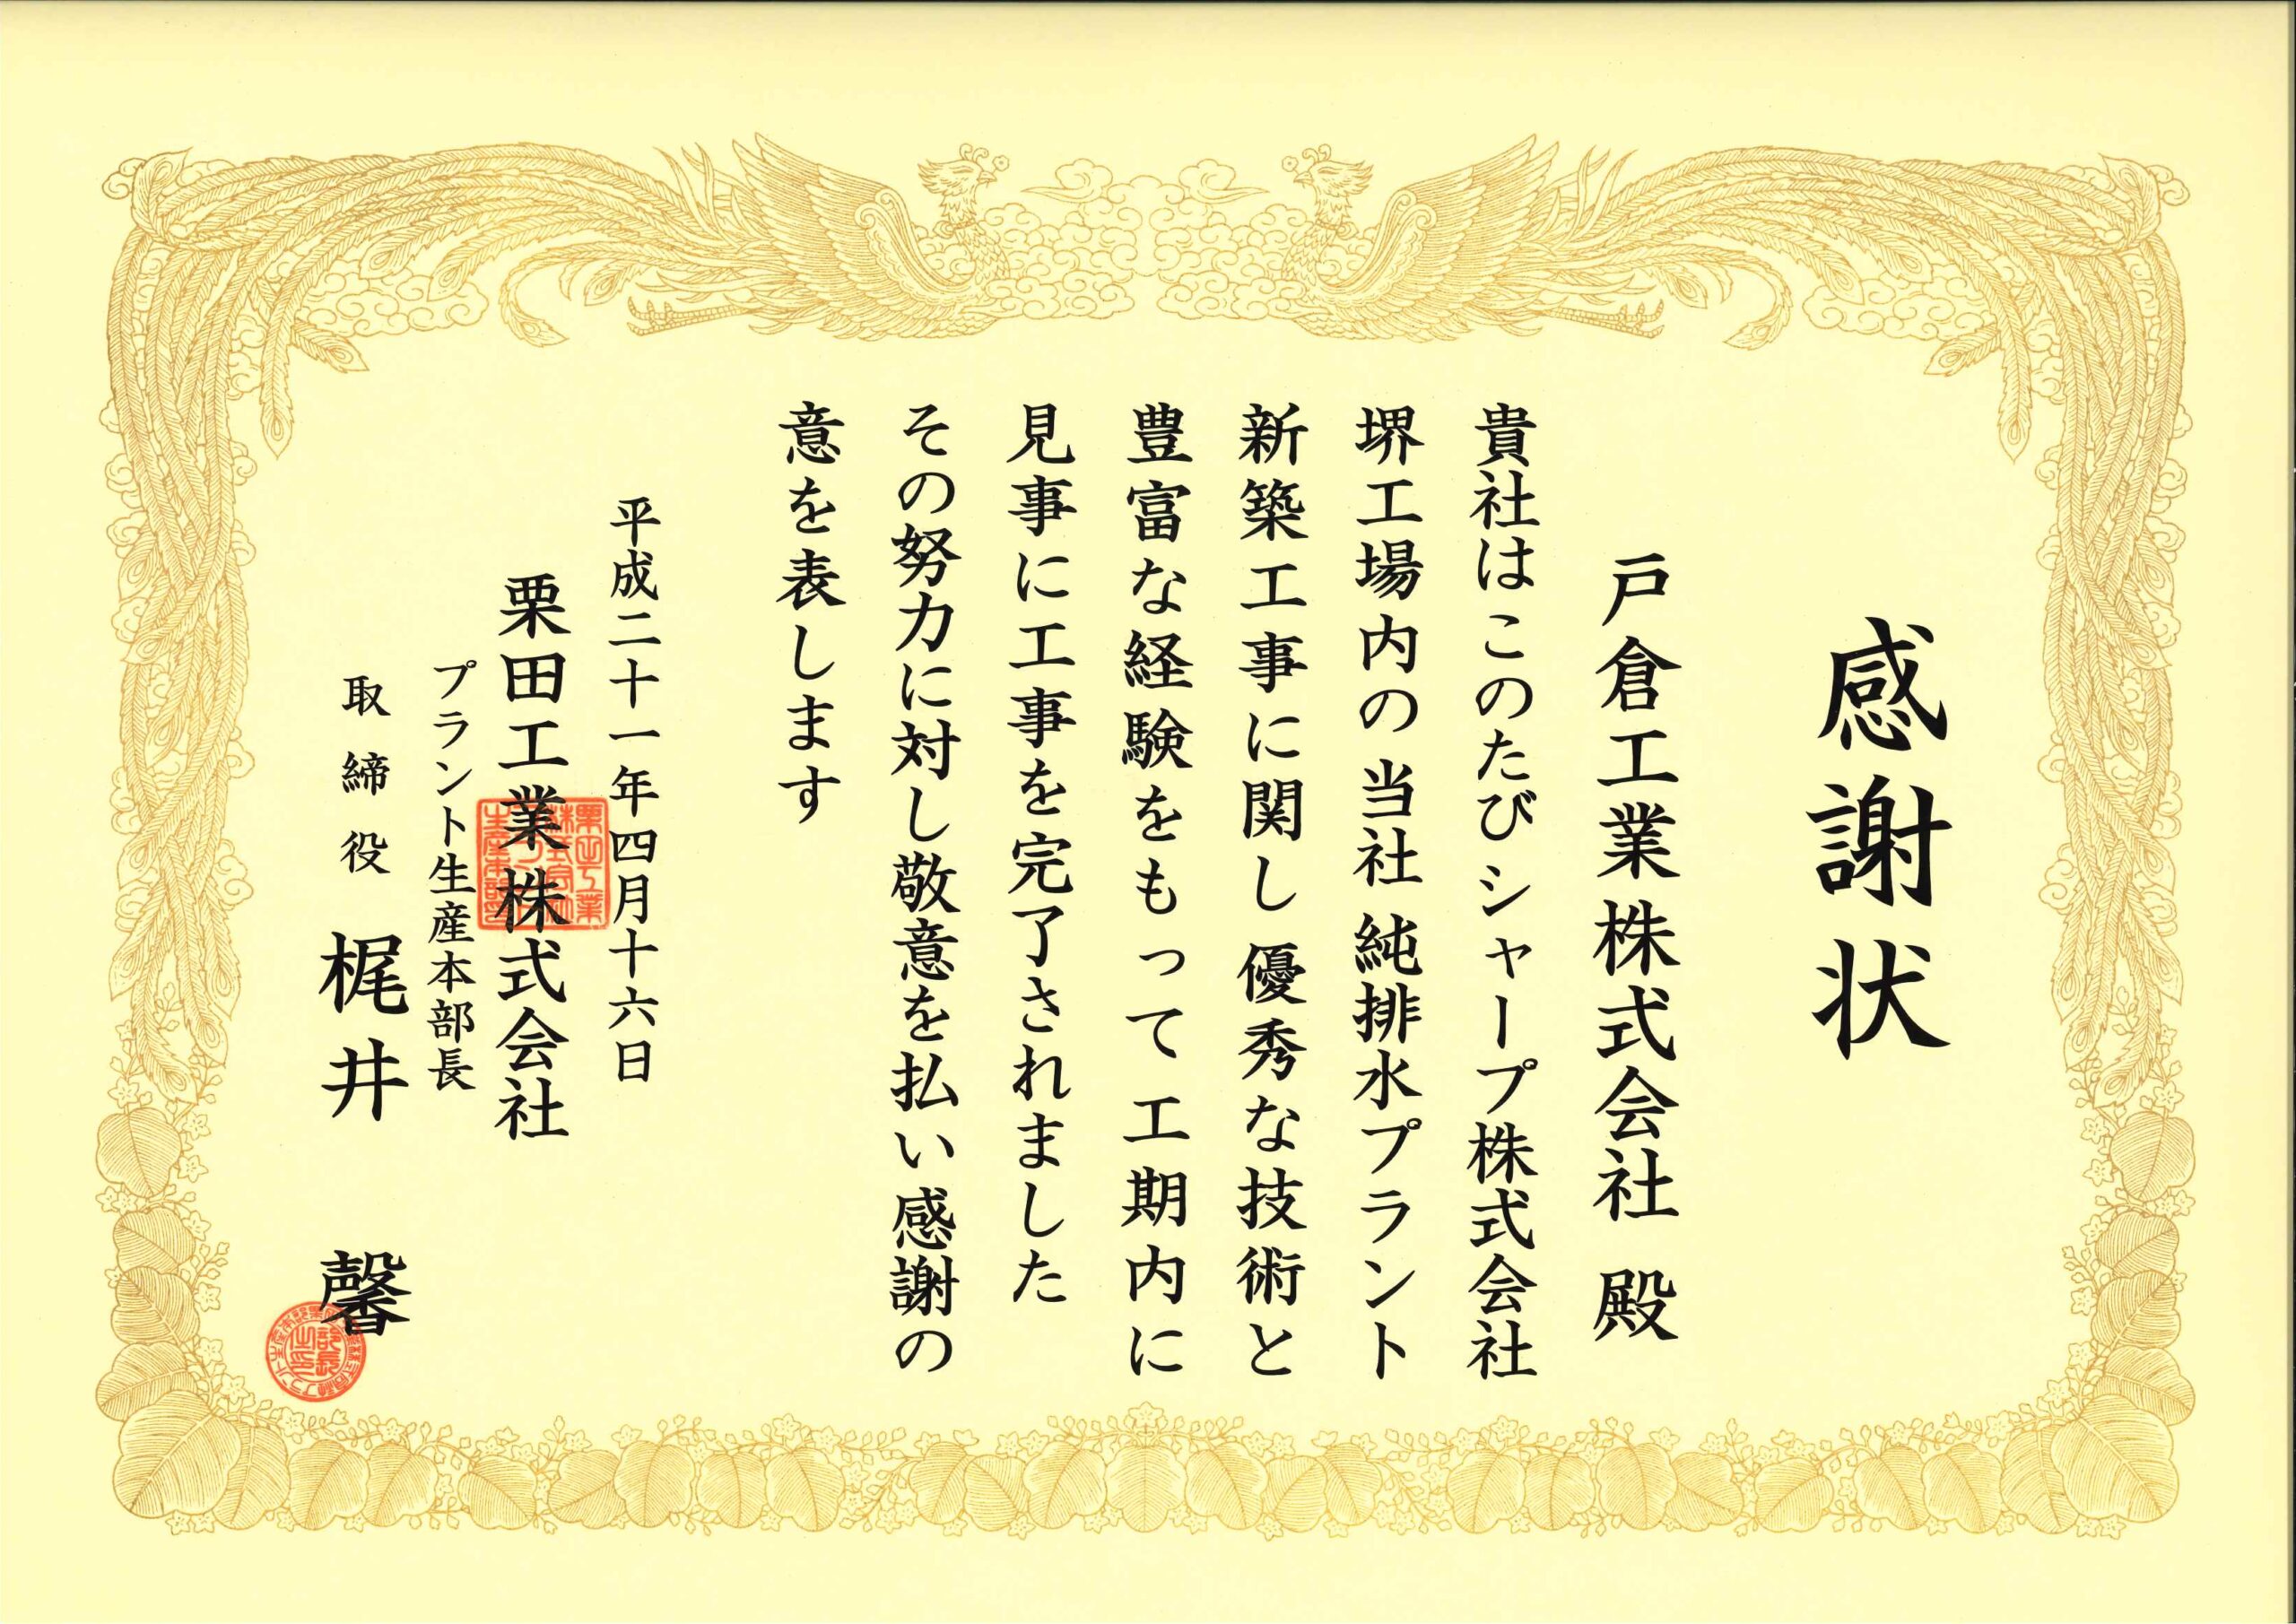 感謝状
戸倉工業株式会社 殿
貴社はこのたびシャープ株式会社
堺工場内の 当社 純排水プラント
新築工事に関し 優秀な技術と
豊富な経験をもって 工期内に
見事に工事を完了されました
その努力に対し敬意を払い 感謝の
意を表します
平成二十一年四月十六日
栗田工業株式会社
プラント生産本部長
取締役 梶井 馨